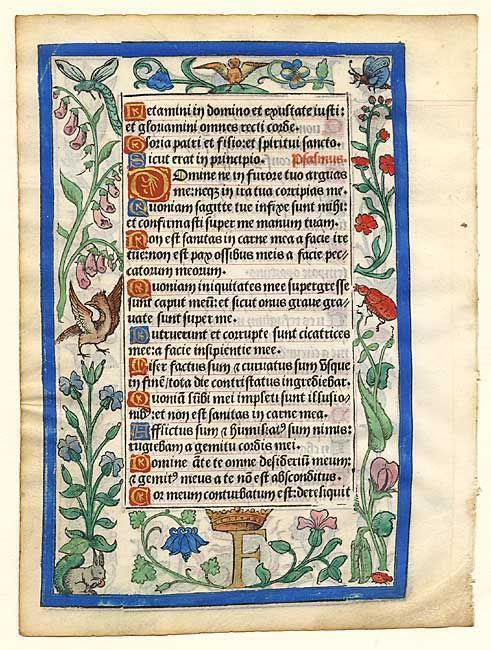 Letamini in domino et exultate iusti:
et gloriamini omnes recti corde.
Gloria patri et filio: et spiritui sancto.
Sicut erat in principio. Psalmus.
Domine ne in furore tuo arguas
me: neqꝫ in ira tua corripias me.
Quoniam sagitte tue infixe sunt mihi:
et confirmasti super me manum tuam.
Non est sanitas in carne mea a facie ire
tue: non est pax ossibus meis a facie pec-
catorum meorum.
Quoniam iniquitates mee supergresse
sunt caput meū: et sicut onus graue gra-
uate sunt super me.
Putruerunt et corrupte sunt cicatrices
mee: a facie insipientie mee.
Miser factus sum ⁊ curuatus sum vsque
in finē/ tota die contristatus ingrediebar.
Quoniā lūbi mei impleti sunt illusio-
nibꝰ: et non est sanitas in carne mea.
Afflictus sum ⁊ humiliatꝰ sum nimis:
rugiebam a gemitu cordis mei.
Domine āte te omne desideriū meum:
⁊ gemitꝰ meus a te nō est absconditus.
Cor meum conturbatum est: dereliquit
F